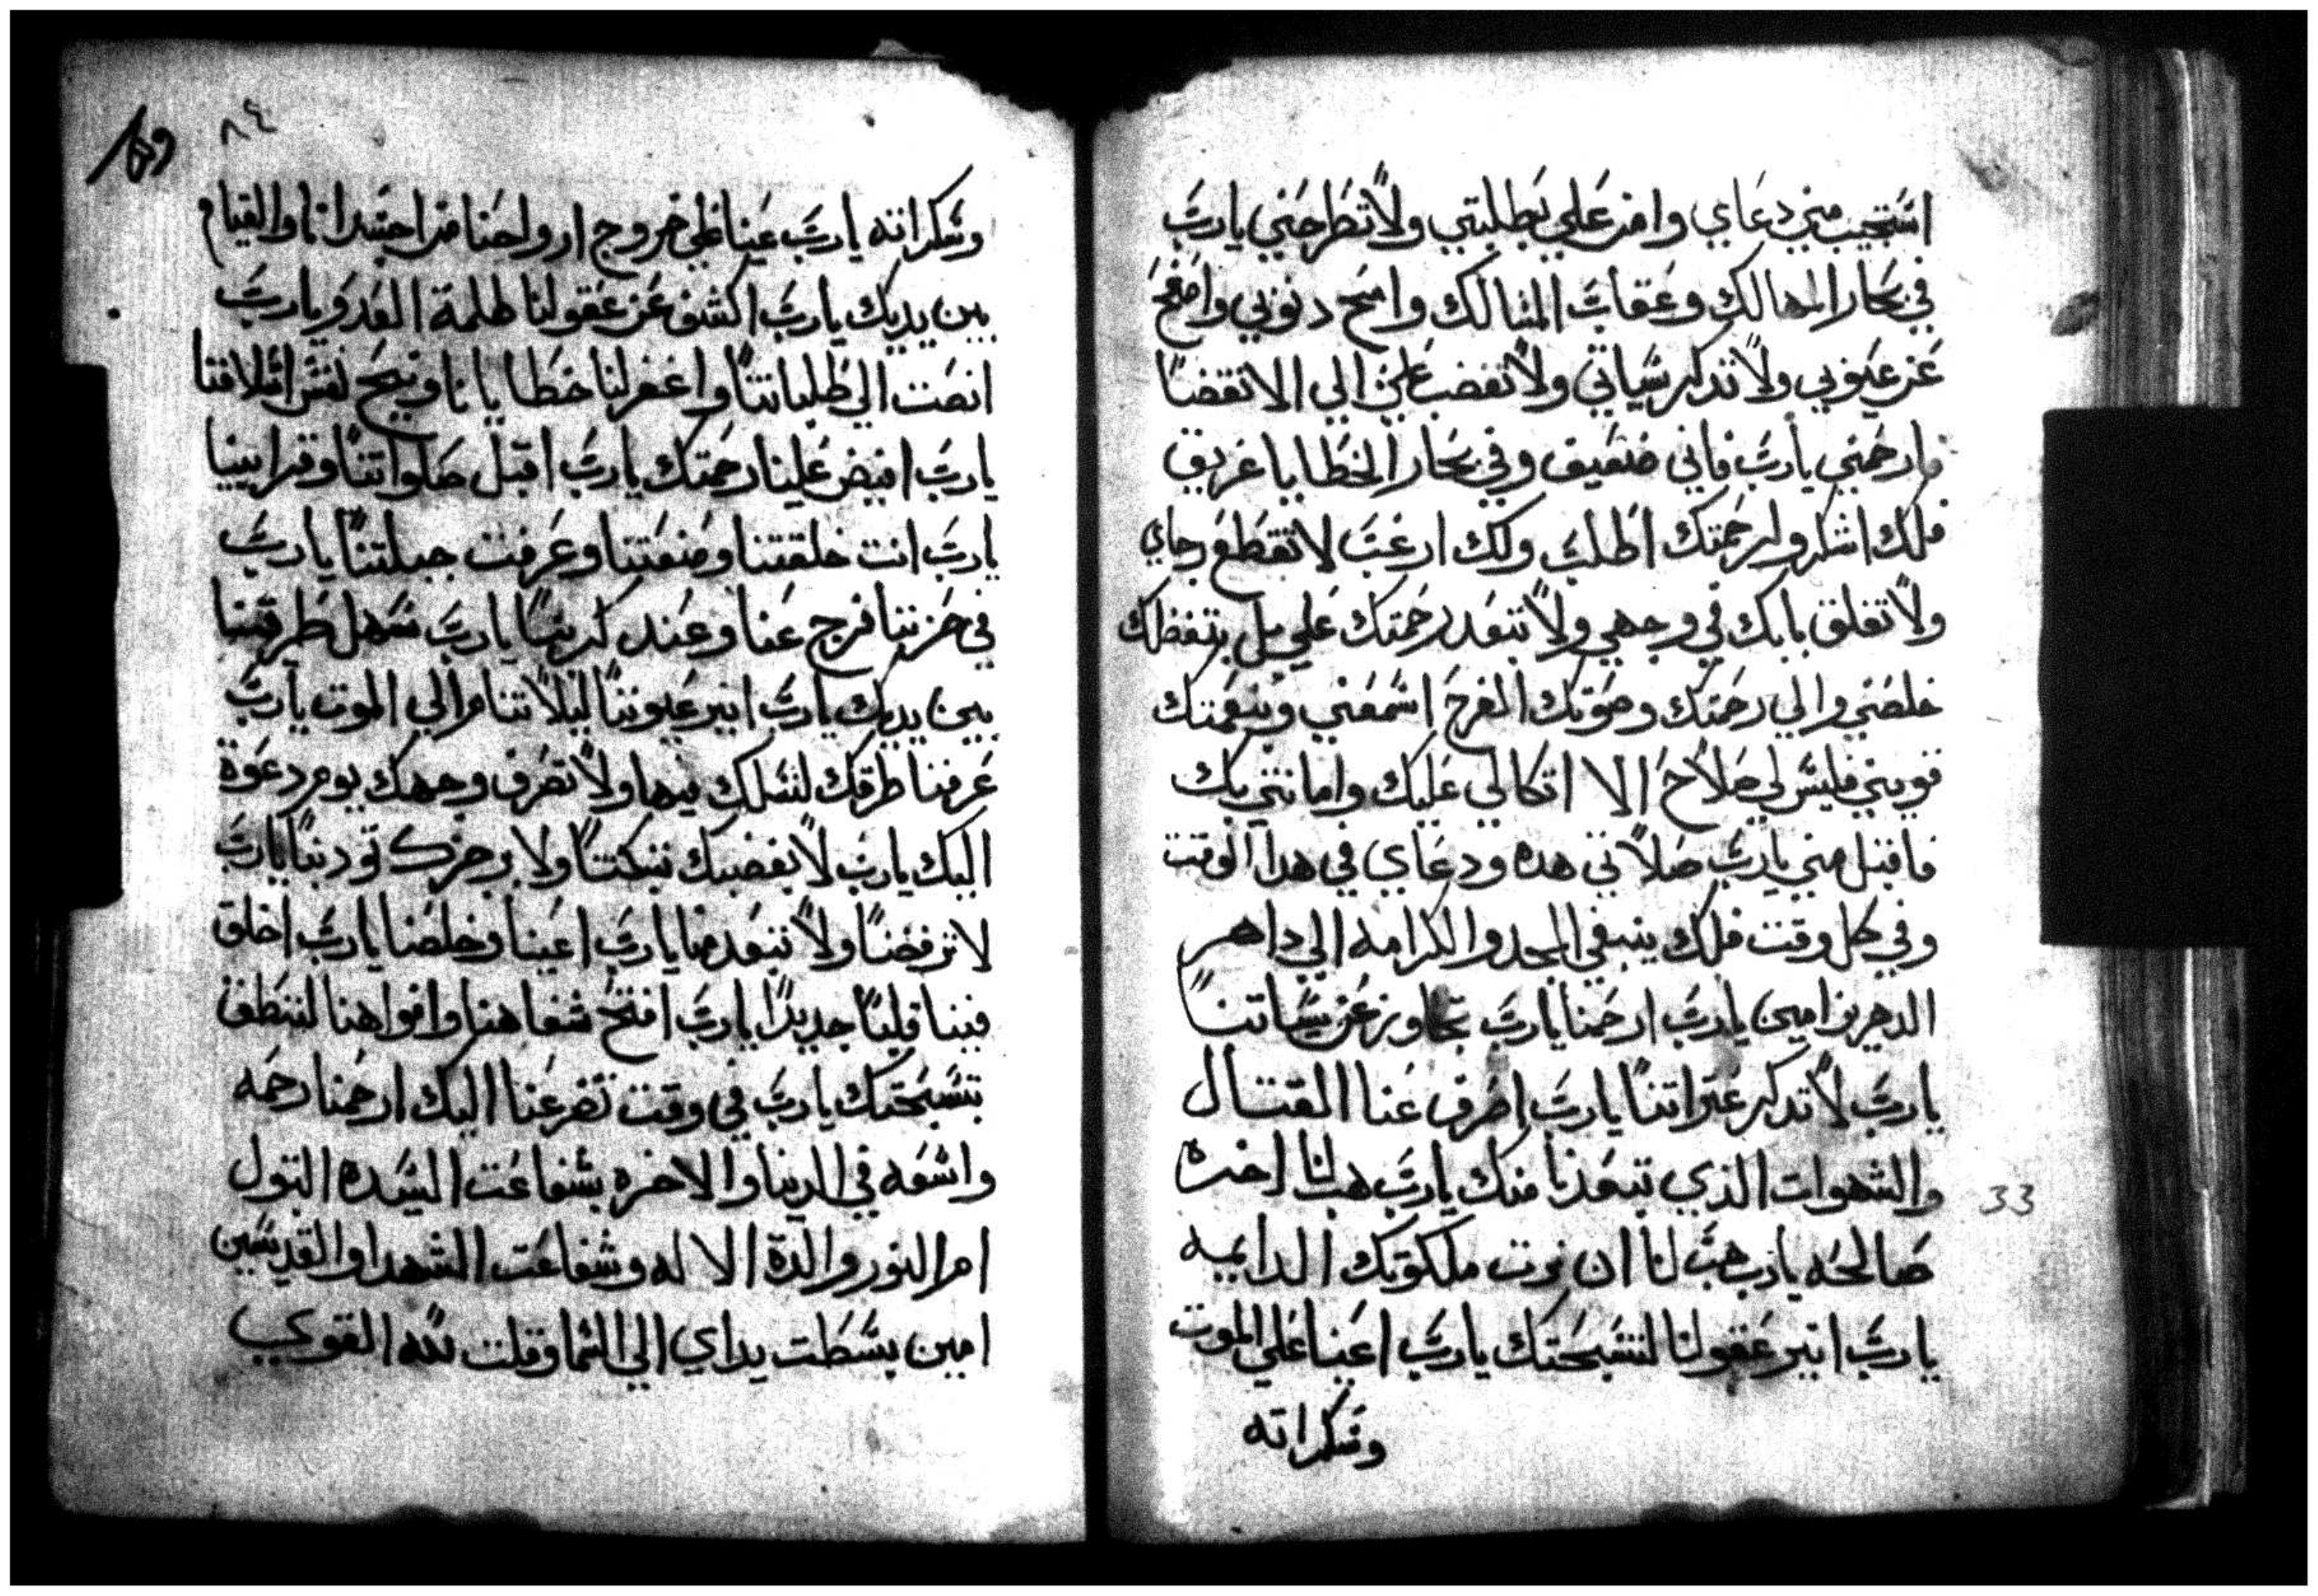 استجيب مني دعاي وامن علي بطلبتي ولا تطرحني يارب
في بحار المهالك وعقاب المنالك وامح دنوبي واصفح
عن عيوبي ولا تدكر سياتي ولا تغضب علي الي الانقضا
وارحمني يارب فاني ضعيف وفي بحار الخطايا غريق
فلك اشكر ولرحمتك اطلب ولك ارغب لا تقطع رجاي
ولا تغلق بابك في وجهي ولا تبعد رحمتك علي بل بتفضلك
خلصني والي رحمتك وصوتك الفرح اسمعني وبنعمتك
قويني فليس لي صلاح الا اتكالي عليك وامانتي بك
فاقبل مني يارب صلاتي هده ودعاي في هدا الوقت
وفي كل وقت فلك ينبغي المجد والكرامه الي داهر
الدهرين امين يارب ارحمنا يارب تجاوز عن سياتنا
يارب لا تدكر عتراتنا يارب اصرف عنا القتال
والشهوات الذي تبعدنا منك يارب هب لنا اخره
صالحه يارب هب لنا ان نرت ملكوتك الدايمه
يارب انير عقولنا لتسبحتك يارب اعينا علي الموت
وسكراته
٨٤
وسكراته يارب عينا علي خروج ارواحنا من اجسدانا والقيام
بين يديك يارب اكشف عن عقولنا ظلمة العدو يارب
انصت الي طلباتنا واغفر لنا خطايانا ونيح نفس اسلافنا
يارب افيض علينا رحمتك يارب اقبل صلواتنا وقرابيننا
يارب انت خلقتنا وصنعتنا وعرفت جبلتنا يارب
في حزننا فرج عنا وعند كربنا يارب سهل طرقتنا
بين يديك يارب انير عيوننا ليلا ننام الي الموت يارب
عرفنا طرقك لنسلك فيها ولا تصرف وجهك يوم دعوة
اليك يارب لا بغضبك تبكتنا ولا برجزك تودبنا يارب
لا ترفضنا ولا تبعد منا يارب اعينا وخلصنا يارب اخلق
فينا قلبا جديدا يارب افتح شفاهنا وافواهنا لننطق
بتسبحتك يارب في وقت تضرعنا اليك ارحمنا رحمه
واسعه في الدنيا والاخره بشفاعت السيده البتول
ام النور والدة الاله وشفاعت الشهدا والقديسين
امين بسطت يداي الي السما وقلت لله القوي
33